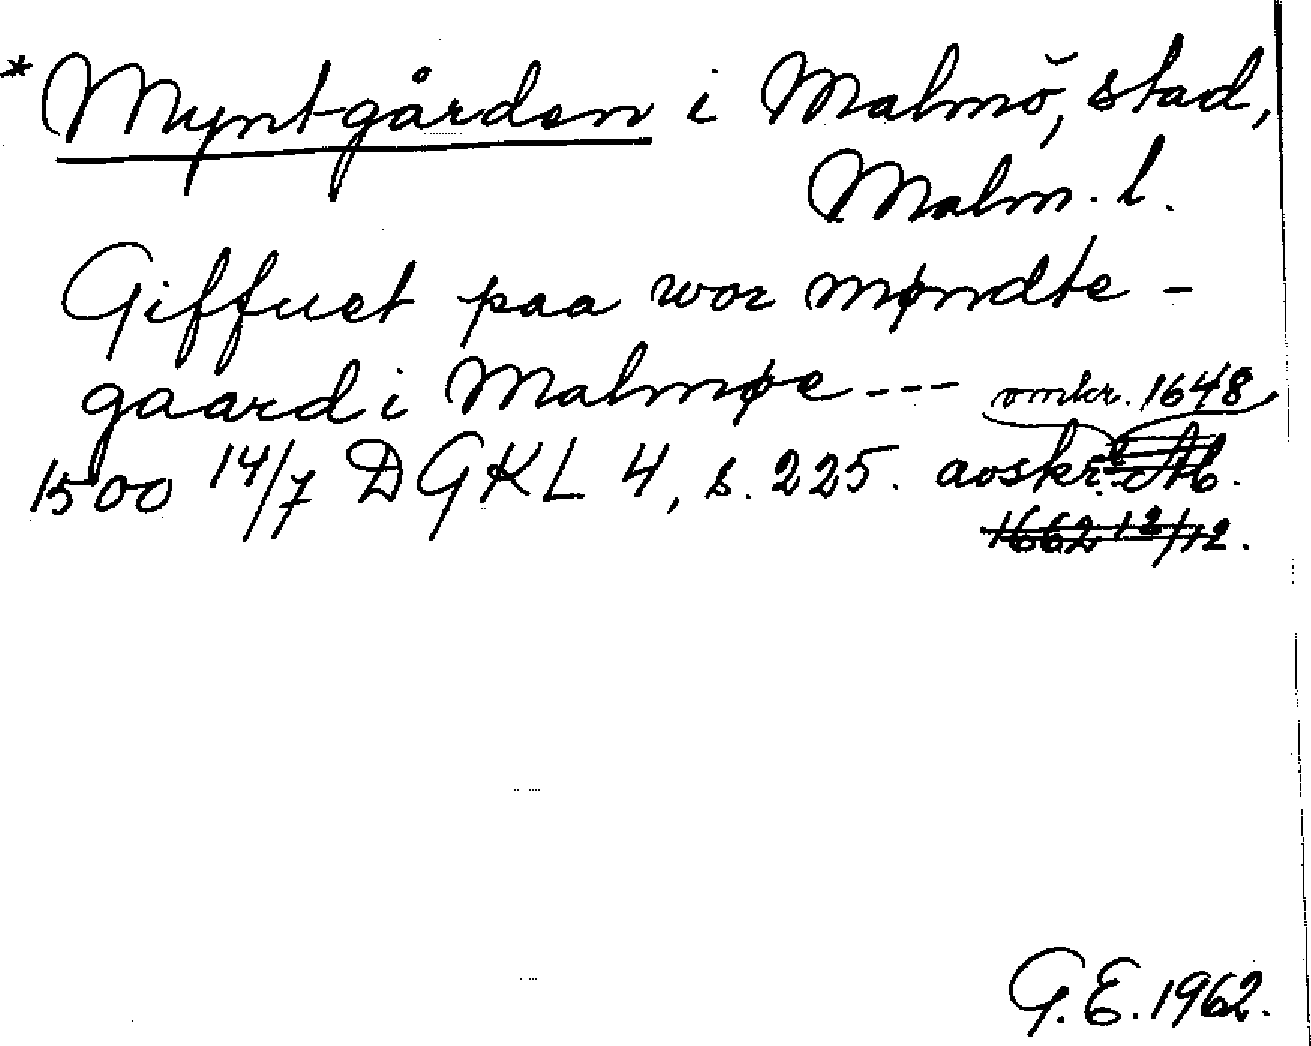 * Myntgården i Malmö, stad,
Malm. l.
Giffuet paa wor møndte-
gaard i Malmøe --- omkr. 1648
1500 14/7 DGKL 4, s. 225. avskr.
1662 12/12.
G. E. 1962.